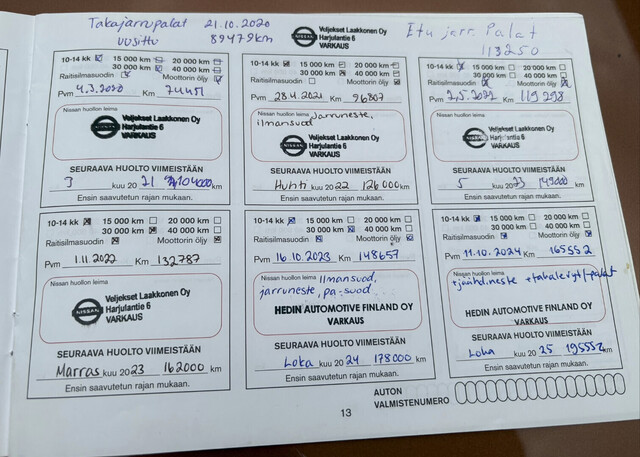 Takajarrupalat 21.10.2020
uusittu 89479km
NISSAN
Veljekset Laakkonen Oy
Harjulantie 6
VARKAUS
Etu jarr. Palat
113250
10-14 kk 15 000 km 20 000 km
30 000 km 40 000 km
Raitisilmasuodin Moottorin öljy
Pvm 4.3.2020 Km 74451
Nissan huollon leima
NISSAN
Veljekset Laakkonen Oy
Harjulantie 6
VARKAUS
SEURAAVA HUOLTO VIIMEISTÄÄN
3 kuu 20 21 104000 km
Ensin saavutetun rajan mukaan.
10-14 kk 15 000 km 20 000 km
30 000 km 40 000 km
Raitisilmasuodin Moottorin öljy
Pvm 28.4.2021 Km 96807
Nissan huollon leima Jarruneste,
ilmansuod
NISSAN
Veljekset Laakkonen Oy
Harjulantie 6
VARKAUS
SEURAAVA HUOLTO VIIMEISTÄÄN
Huhti kuu 20 22 126000 km
Ensin saavutetun rajan mukaan.
10-14 kk 15 000 km 20 000 km
30 000 km 40 000 km
Raitisilmasuodin Moottorin öljy
Pvm 2.5.2022 Km 119298
Nissan huollon leima
NISSAN
Veljekset Laakkonen Oy
Harjulantie 6
VARKAUS
SEURAAVA HUOLTO VIIMEISTÄÄN
5 kuu 20 23 149000 km
Ensin saavutetun rajan mukaan.
10-14 kk 15 000 km 20 000 km
30 000 km 40 000 km
Raitisilmasuodin Moottorin öljy
Pvm 1.11.2022 Km 132787
Nissan huollon leima
NISSAN
Veljekset Laakkonen Oy
Harjulantie 6
VARKAUS
SEURAAVA HUOLTO VIIMEISTÄÄN
Marras kuu 20 23 162000 km
Ensin saavutetun rajan mukaan.
10-14 kk 15 000 km 20 000 km
30 000 km 40 000 km
Raitisilmasuodin Moottorin öljy
Pvm 16.10.2023 Km 148657
Nissan huollon leima Ilmansuod,
jarruneste, pa-suod...
HEDIN AUTOMOTIVE FINLAND OY
VARKAUS
SEURAAVA HUOLTO VIIMEISTÄÄN
Loka kuu 20 24 178000 km
Ensin saavutetun rajan mukaan.
10-14 kk 15 000 km 20 000 km
30 000 km 40 000 km
Raitisilmasuodin Moottorin öljy
Pvm 11.10.2024 Km 165552
Nissan huollon leima
+jäähd.neste +takalevyt/-palat
HEDIN AUTOMOTIVE FINLAND OY
VARKAUS
SEURAAVA HUOLTO VIIMEISTÄÄN
Loka kuu 20 25 195552 km
Ensin saavutetun rajan mukaan.
AUTON
VALMISTENUMERO
13